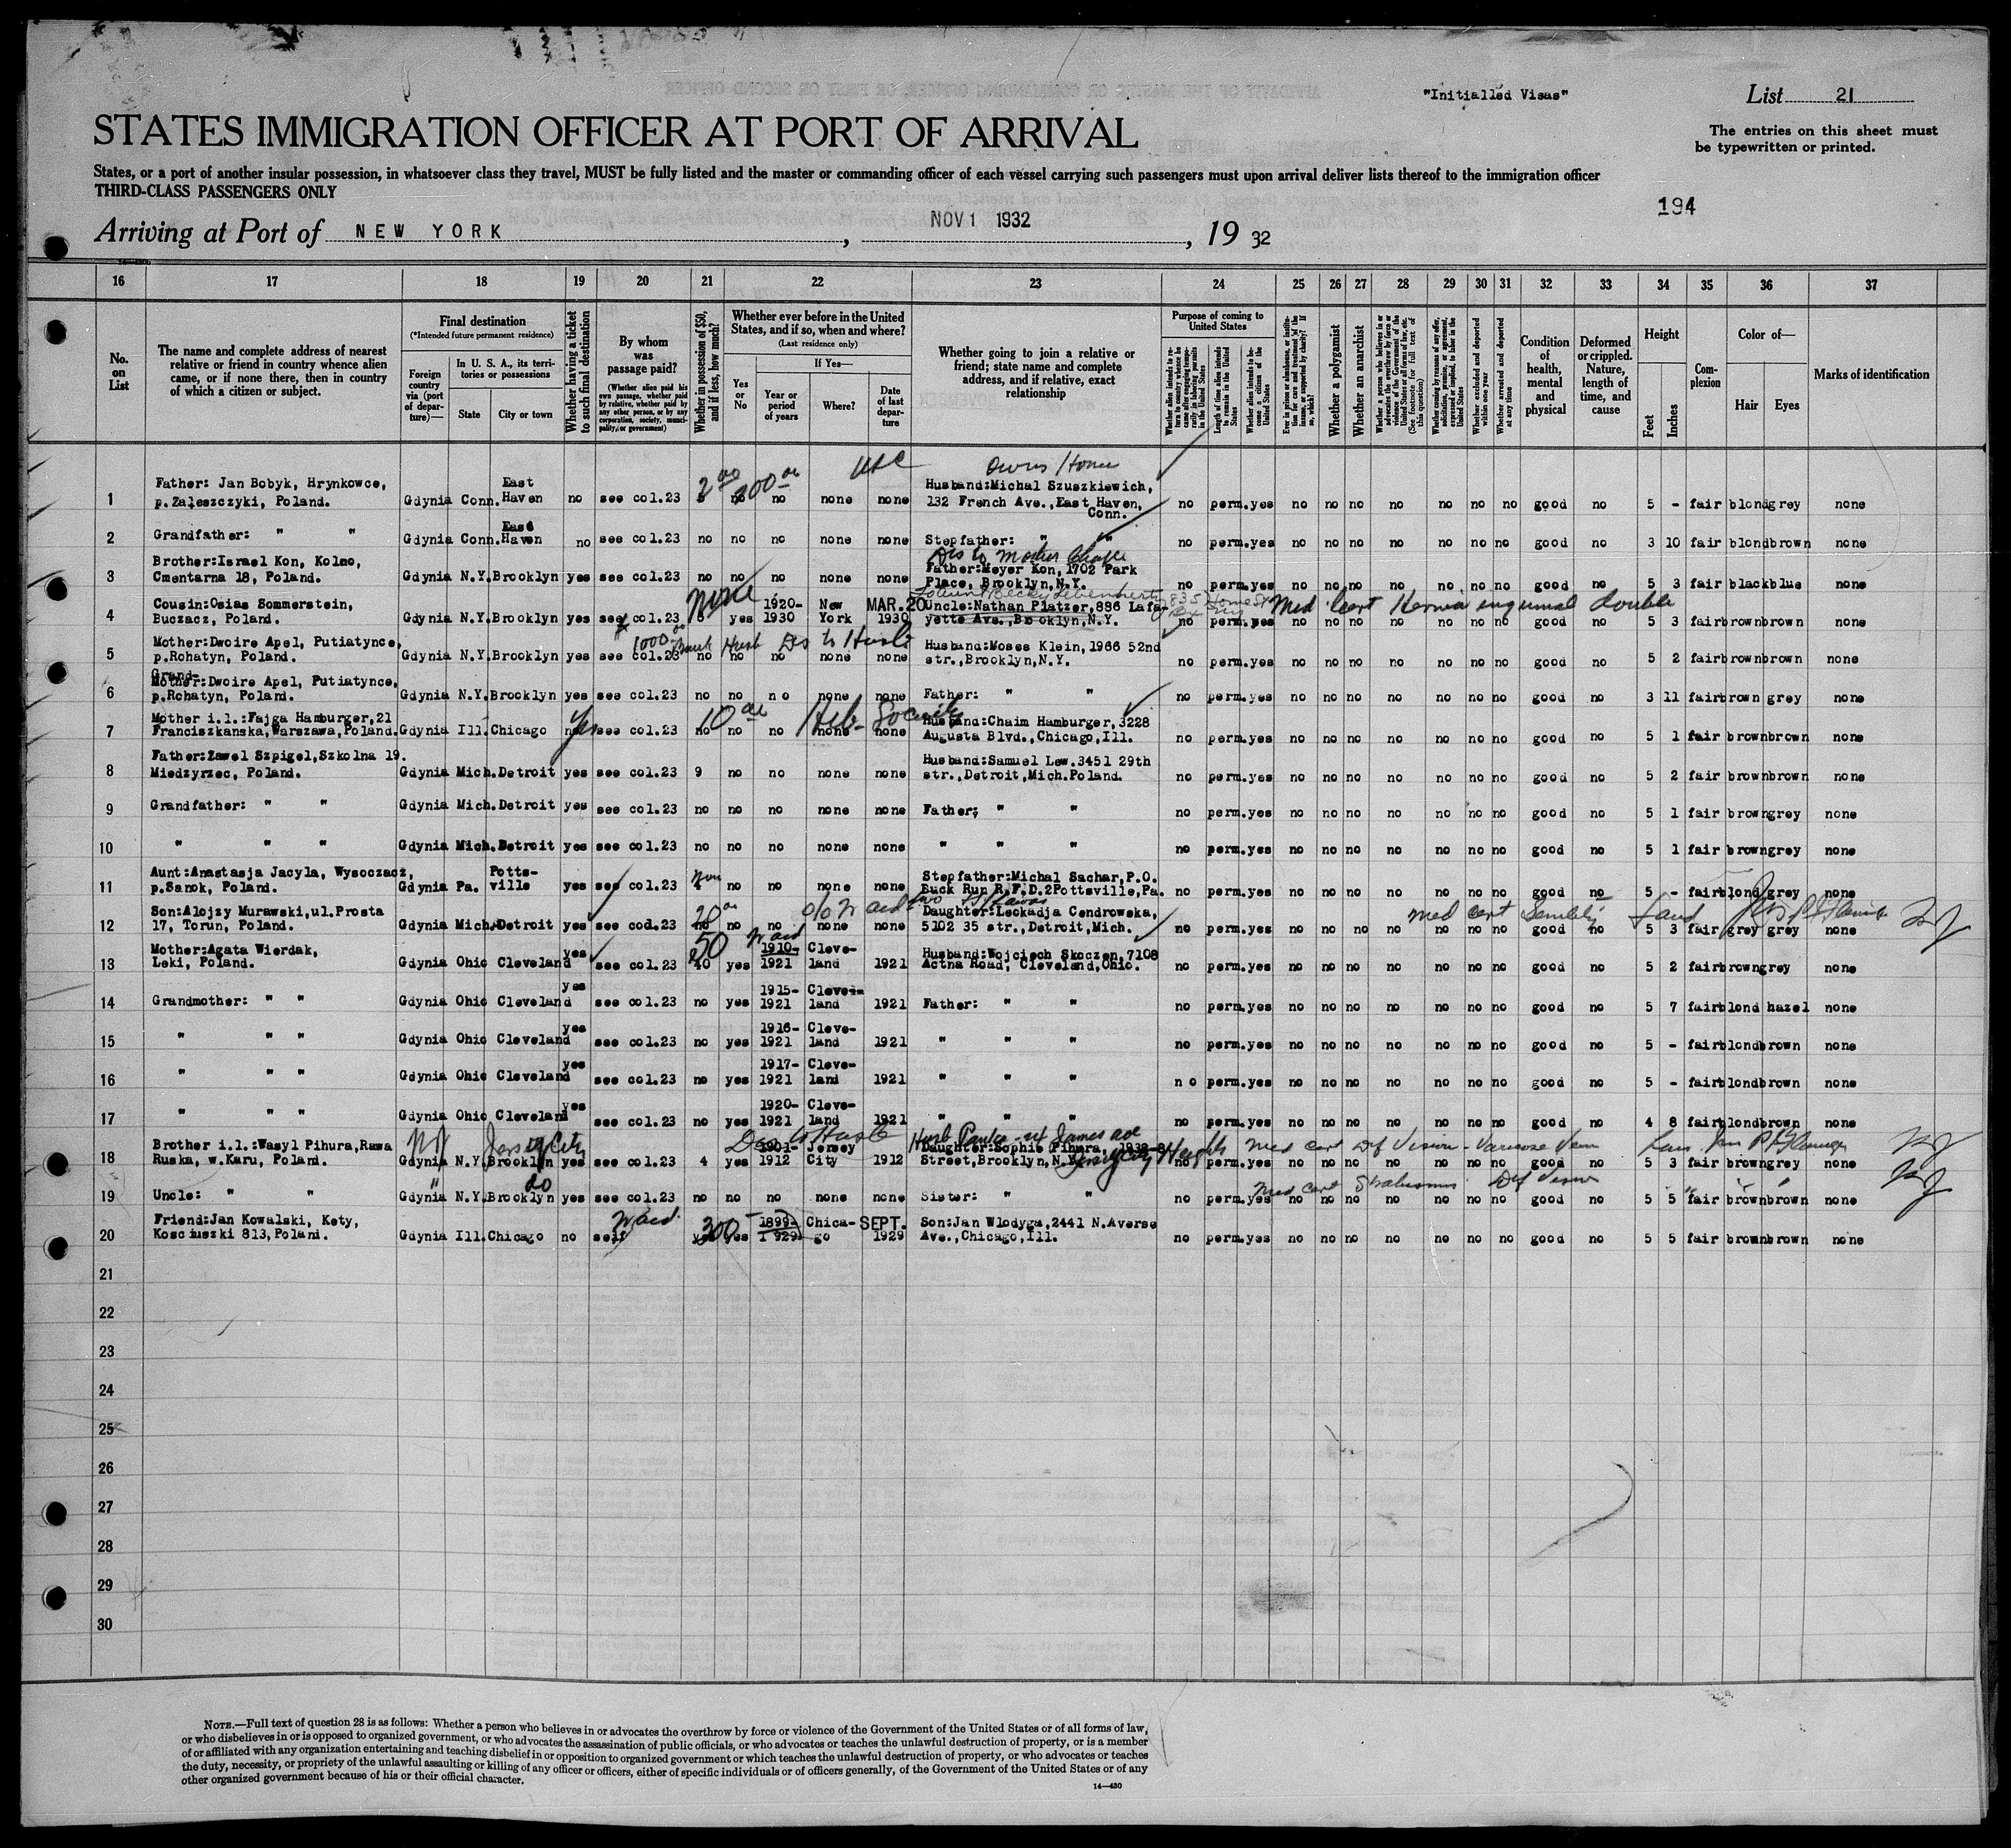 "Initialled Visas"
List 21
STATES IMMIGRATION OFFICER AT PORT OF ARRIVAL
The entries on this sheet must
be typewritten or printed.
States, or a port of another insular possession, in whatsoever class they travel, MUST be fully listed and the master or commanding officer of each vessel carrying such passengers must upon arrival deliver lists thereof to the immigration officer
THIRD-CLASS PASSENGERS ONLY
194
Arriving at Port of NEW YORK, NOV 1 1932, 19 32
16 17 18 19 20 21 22 23 24 25 26 27 28 29 30 31 32 33 34 35 36 37
No. on List
The name and complete address of nearest relative or friend in country whence alien came, or if none there, then in country of which a citizen or subject.
Final destination
(*Intended future permanent residence)
Foreign country via (port of departure)—
In U. S. A., its territories or possessions
State
City or town
Whether having a ticket to such final destination
By whom was passage paid?
(Whether alien paid his own passage, whether paid by relative, whether paid by any other person, or by any corporation, society, municipality, or government)
Whether in possession of $50, and if less, how much?
Whether ever before in the United States, and if so, when and where?
(Last residence only)
Yes or No
If Yes—
Year or period of years
Where?
Date of last departure
Whether going to join a relative or friend; state name and complete address, and if relative, exact relationship
Purpose of coming to United States
Whether alien intends to return to country whence he came after engaging temporarily in laboring pursuits in the United States
Length of time alien intends to remain in the United States
Whether alien intends to become a citizen of the United States
Ever in prison or almshouse, or institution for care and treatment of the insane, or supported by charity? If so, which?
Whether a polygamist
Whether an anarchist
Whether a person who believes in or advocates the overthrow by force or violence of the Government of the United States or all forms of law, etc. (See footnote for full text of this question)
Whether coming by reasons of any offer, solicitation, promise, or agreement, expressed or implied, to labor in the United States
Whether excluded and deported within one year
Whether arrested and deported at any time
Condition of health, mental and physical
Deformed or crippled. Nature, length of time, and cause
Height
Feet
Inches
Complexion
Color of—
Hair
Eyes
Marks of identification
Owns Home
1 Father: Jan Bobyk, Hrynkowce, p.Zaleszczyki, Poland. Gdynia Conn. East Haven no see col.23 no no none none Husband:Michal Szuszkiewich, 132 French Ave., East Haven, Conn. no perm. yes no no no no no no no good no 5 - fair blond grey none
2 Grandfather: " " Gdynia Conn. East Haven no see col.23 no no no none none Stepfather: " " no perm. yes no no no no no no no good no 3 10 fair blond brown none
3 Brother:Israel Kon, Kolno, Cmentarna 18, Poland. Gdynia N.Y. Brooklyn yes see col.23 no no no none none Father:Meyer Kon, 1702 Park Place, Brooklyn, N.Y. no perm. yes no no no no no no no good no 5 3 fair black blue none
4 Cousin:Osias Sommerstein, Buczacz, Poland. Gdynia N.Y. Brooklyn yes see col.23 None yes 1920-1930 New York MAR.20 1930 Uncle:Nathan Platzer, 886 Lafayette Ave., Brooklyn, N.Y. no perm. yes no no no no no no no good no 5 3 fair brown brown none
5 Mother:Dwoire Apel, Putiatynce, p.Rohatyn, Poland. Gdynia N.Y. Brooklyn yes see col.23 no no no none none Husband:Moses Klein, 1966 52nd str., Brooklyn, N.Y. no perm. yes no no no no no no no good no 5 2 fair brown brown none
6 Grand-Mother:Dwoire Apel, Putiatynce, p.Rohatyn, Poland. Gdynia N.Y. Brooklyn yes see col.23 no no no none none Father: " " no perm. yes no no no no no no no good no 3 11 fair brown grey none
7 Mother i.l.:Fajga Hamburger, 21 Franciszkanska, Warszawa, Poland. Gdynia Ill. Chicago yes see col.23 no no no none none Husband:Chaim Hamburger, 3228 Augusta Blvd., Chicago, Ill. no perm. yes no no no no no no no good no 5 1 fair brown brown none
8 Father:Zawel Szpigel, Szkolna 19. Miedzyrzec, Poland. Gdynia Mich. Detroit yes see col.23 9 no no none none Husband:Samuel Lew. 3451 29th str., Detroit, Mich. Poland. no perm. yes no no no no no no no good no 5 2 fair brown brown none
9 Grandfather: " " Gdynia Mich. Detroit yes see col.23 no no no none none Father; " " no perm. yes no no no no no no no good no 5 1 fair brown grey none
10 " " " Gdynia Mich. Detroit yes see col.23 no no no none none " " " no perm. yes no no no no no no no good no 5 1 fair brown grey none
11 Aunt:Anastasja Jacyla, Wysoczacz, p.Sanok, Poland. Gdynia Pa. Pottsville yes see col.23 no no none none Stepfather:Michal Sachar, P.O. Buck Run R.F.D.2 Pottsville, Pa. no perm. yes no no no no no no no good no 5 - fair blond grey none
12 Son:Alojzy Murawski, ul.Prosta 17, Torun, Poland. Gdynia Mich. Detroit yes see col.23 no no no none none Daughter:Leokadja Cendrowska, 5102 35 str., Detroit, Mich. no perm. yes no no no no no no no good no 5 3 fair grey grey none
13 Mother:Agata Wierdak, Leki, Poland. Gdynia Ohio Cleveland yes see col.23 40 50 yes 1910-1921 Cleveland 1921 Husband:Wojciech Skoczen, 7108 Actna Road, Cleveland, Ohio. no perm. yes no no no no no no no good no 5 2 fair brown grey none
14 Grandmother: " " Gdynia Ohio Cleveland yes see col.23 no yes 1915-1921 Cleveland 1921 Father: " " no perm. yes no no no no no no no good no 5 7 fair blond hazel none
15 " " " Gdynia Ohio Cleveland yes see col.23 no yes 1916-1921 Cleveland 1921 " " " no perm. yes no no no no no no no good no 5 - fair blond brown none
16 " " " Gdynia Ohio Cleveland yes see col.23 no yes 1917-1921 Cleveland 1921 " " " no perm. yes no no no no no no no good no 5 - fair blond brown none
17 " " " Gdynia Ohio Cleveland yes see col.23 no yes 1920-1921 Cleveland 1921 " " " no perm. yes no no no no no no no good no 4 8 fair blond brown none
18 Brother i.l.:Wasyl Pihura, Rawa Ruska, w.Karu, Poland. Gdynia N.Y. Brooklyn yes see col.23 4 yes 1901-1912 Jersey City 1912 Daughter:Sophie Pihura, Street, Brooklyn, N.Y. no perm. yes no no no no no no no good no 5 3 fair brown grey none
19 Uncle: " " Gdynia N.Y. Brooklyn yes see col.23 no no no none none Sister: " " no perm. yes no no no no no no no good no 5 5 fair brown brown none
20 Friend:Jan Kowalski, Kety, Kosciuszki 813, Poland. Gdynia Ill. Chicago no self 300 yes 1899-1929 Chicago SEPT. 1929 Son:Jan Wlodyga, 2441 N.Averse Ave., Chicago, Ill. no perm. yes no no no no no no no good no 5 5 fair brown brown none
21
22
23
24
25
26
27
28
29
30
NOTE.—Full text of question 28 is as follows: Whether a person who believes in or advocates the overthrow by force or violence of the Government of the United States or of all forms of law,
or who disbelieves in or is opposed to organized government, or who advocates the assassination of public officials, or who advocates or teaches the unlawful destruction of property, or is a member
of or affiliated with any organization entertaining and teaching disbelief in or opposition to organized government or which teaches the unlawful destruction of property, or who advocates or teaches
the duty, necessity, or propriety of the unlawful assaulting or killing of any officer or officers, either of specific individuals or of officers generally, of the Government of the United States or of any
other organized government because of his or their official character.
14—430